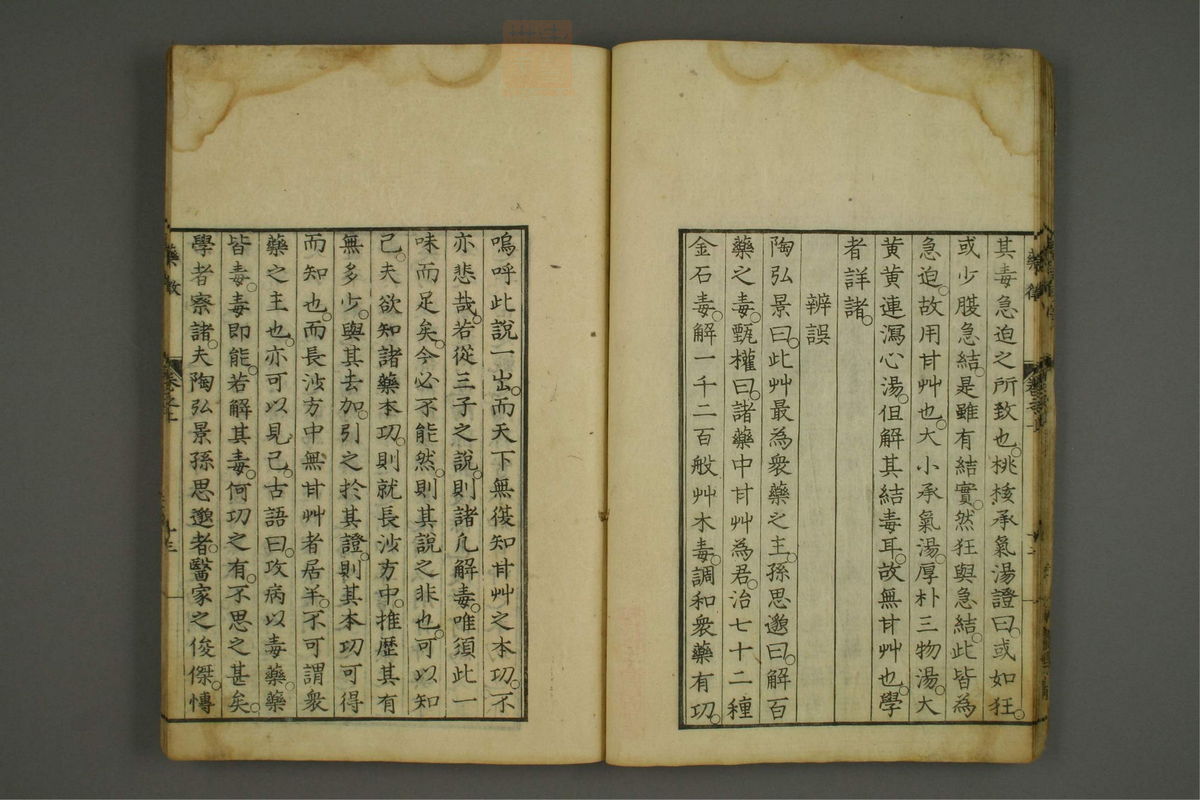 其毒急迫之所致也。桃核承氣湯證曰。或如狂。
或少腹急結。是雖有結實。然狂與急結。此皆為
急迫。故用甘艸也。大小承氣湯。厚朴三物湯。大
黃黃連瀉心湯。但解其結毒耳。故無甘艸也。學
者詳諸。
辨誤
陶弘景曰。此艸最為衆藥之主。孫思邈曰。解百
藥之毒。甄權曰。諸藥中甘艸為君。治七十二種
金石毒。解一千二百般艸木毒。調和衆藥有功。
嗚呼此說一出。而天下無復知甘艸之本功。不
亦悲哉。若從三子之說。則諸凡解毒。唯須此一
味而足矣。今必不能然。則其說之非也。可以知
已。夫欲知諸藥本功。則就長沙方中。推歷其有
無多少。與其去加。引之於其證。則其本功可得
而知也。而長沙方中無甘艸者居半。不可謂衆
藥之主也。亦可以見已。古語曰。攻病以毒藥。藥
皆毒。毒即能。若解其毒。何功之有。不思之甚矣。
學者察諸。夫陶弘景孫思邈者。醫家之俊傑。博
藥徵